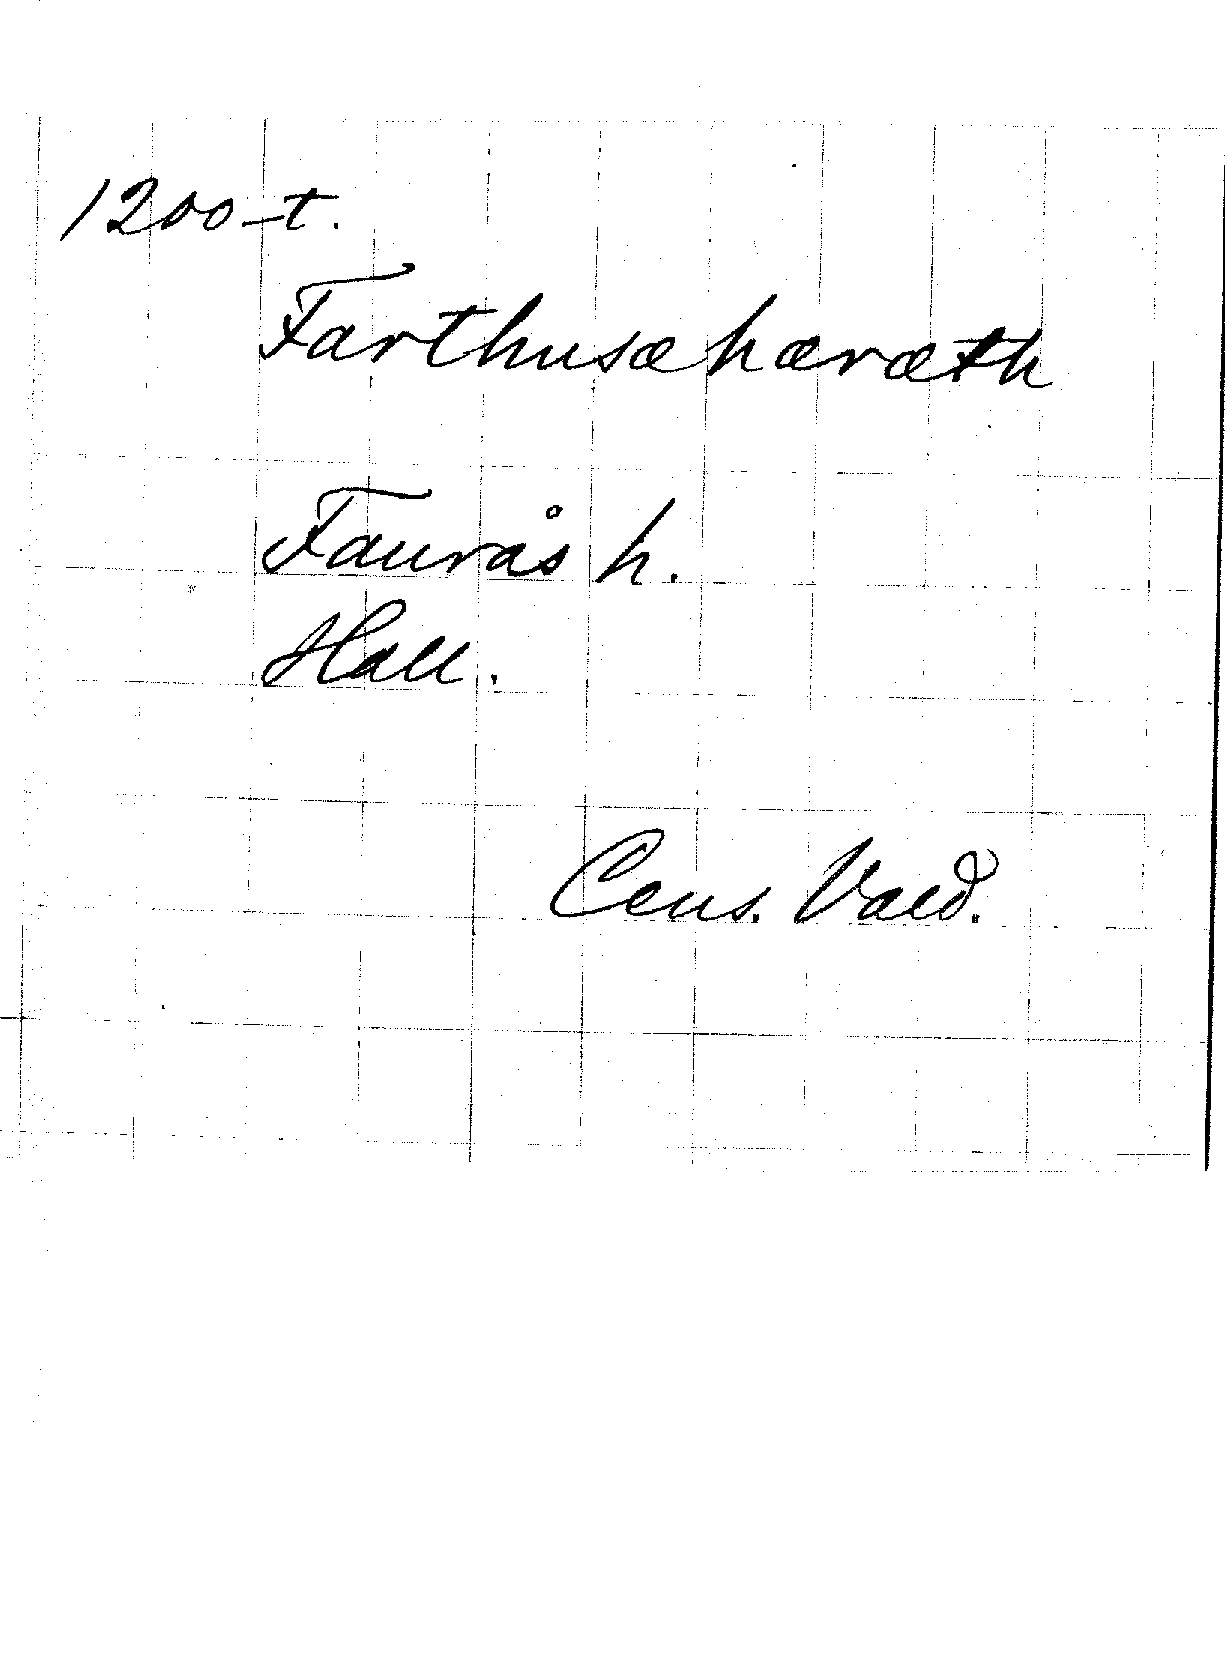 1200-t.
Farthusæhæræth
Faurås h.
Hall.
Cens. Vald.